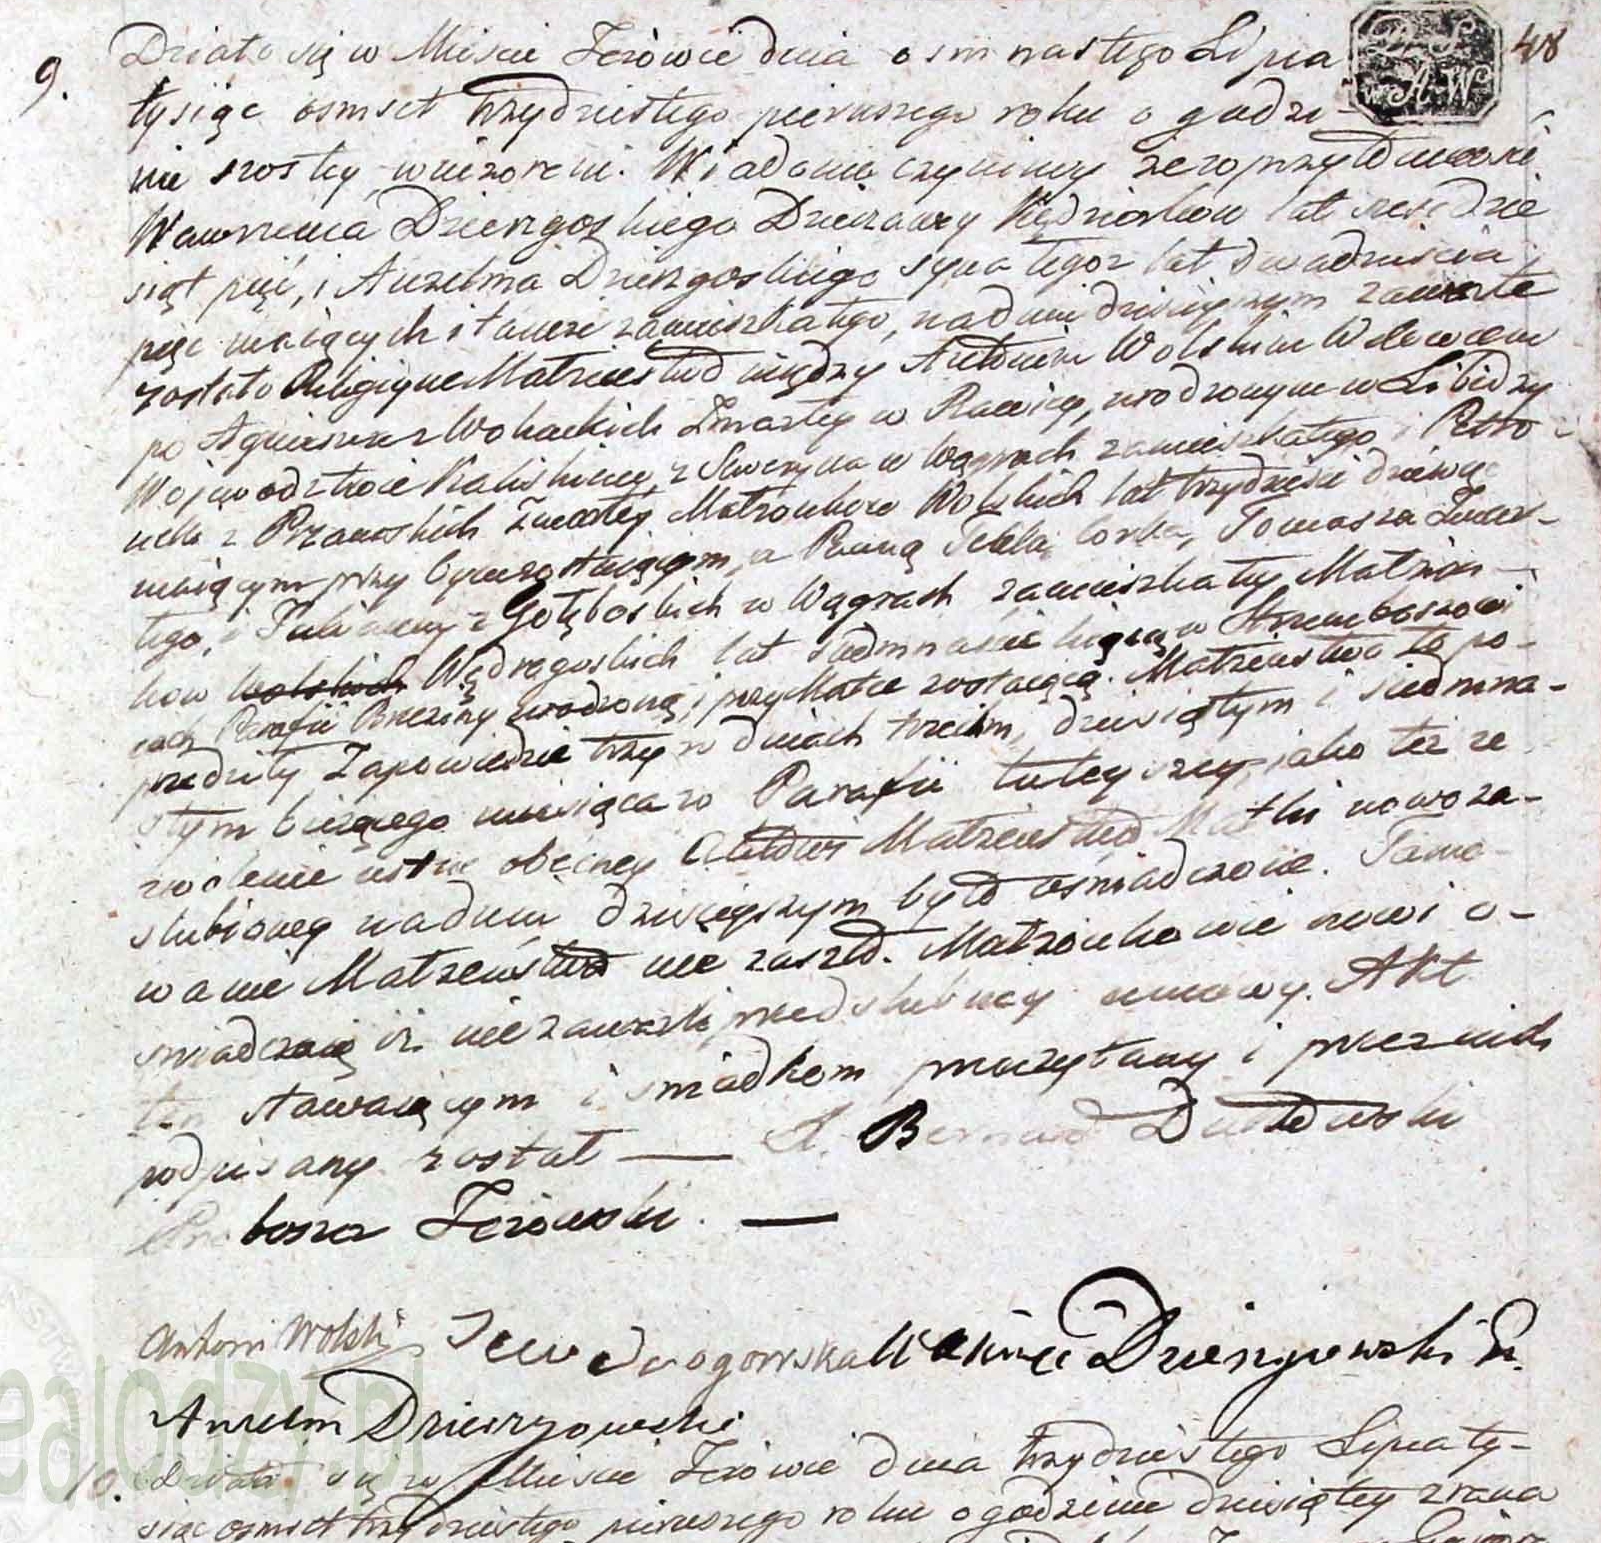 9. Działo się w Mieście Jeżowie dnia osmnastego Lipca 48
tysiąc osmset trzydziestego pierwszego roku o godzi-
nie szostey wieczorem. Wiadomo czyniemy że w przytomności
Wawrzeńca Dzierzgoskiego Dzierzawcy lat sześćdzie
siąt pięć, i Anzelma Dzierzgoskiego syna tegoż lat dwadzieścia
pięć maiących i tamże zamieszkałego, na dniu dzisieyszym zawarte
zostało Religiyne Małżeństwo między Antonim Wolskim Wdowcem
po Agnieszce z Wohackich Zmarłey w Rawiczu, urodzonym w Libidzy
Wojewodztwie Kaliskiem, z Seweryna w Węgrach zamieszkałego i Petro-
nelli z Zmarłey Małżonków Wolskich lat trzydzieści dziewięć
maiącym przy Oycu zostaiącym, a Panną Teklą, Corką, Tomasza Zmar-
łego, i Julianny z Gołęboskich w Węgrach zamieszkałey Małżon-
kow Wolskich Wędrogoskich lat siedmnaście liczącą w Strzemboszowi
cach Parafii Brzeziny urodzoną, i przy Matce zostaiącą. Małżeństwo to po-
przedziły Zapowiedzie trzy w dniach trzecim, dziewiątym i siedmna-
stym bieżącego miesiąca w Parafii tuteyszey, jako też ze
zwolenie ustne obecney Aktowi Małżeństwa Matki nowoza-
slubioney na dniu dzisieyszym było oswiadczone. Tamo-
wanie Małżeństwa nie zaszło. Małżonkowie nowi o-
swiadczaią iż nie zawarli przedslubney umowy. Akt
ten stawaiącym i swiadkom przeczytany i przez nich
podpisany został — X. Bernard Dutkowski
Proboszcz Jeżowski. —
Antoni Wolski Wawrzeniec Dzierzgowski
Anzelm Dzierzgowski
10. Działo się w Mieście Jeżowie dnia trzydziestego Lipca ty-
siąc osmset trzydziestego pierwszego roku o godzinie dziewiątey z rana